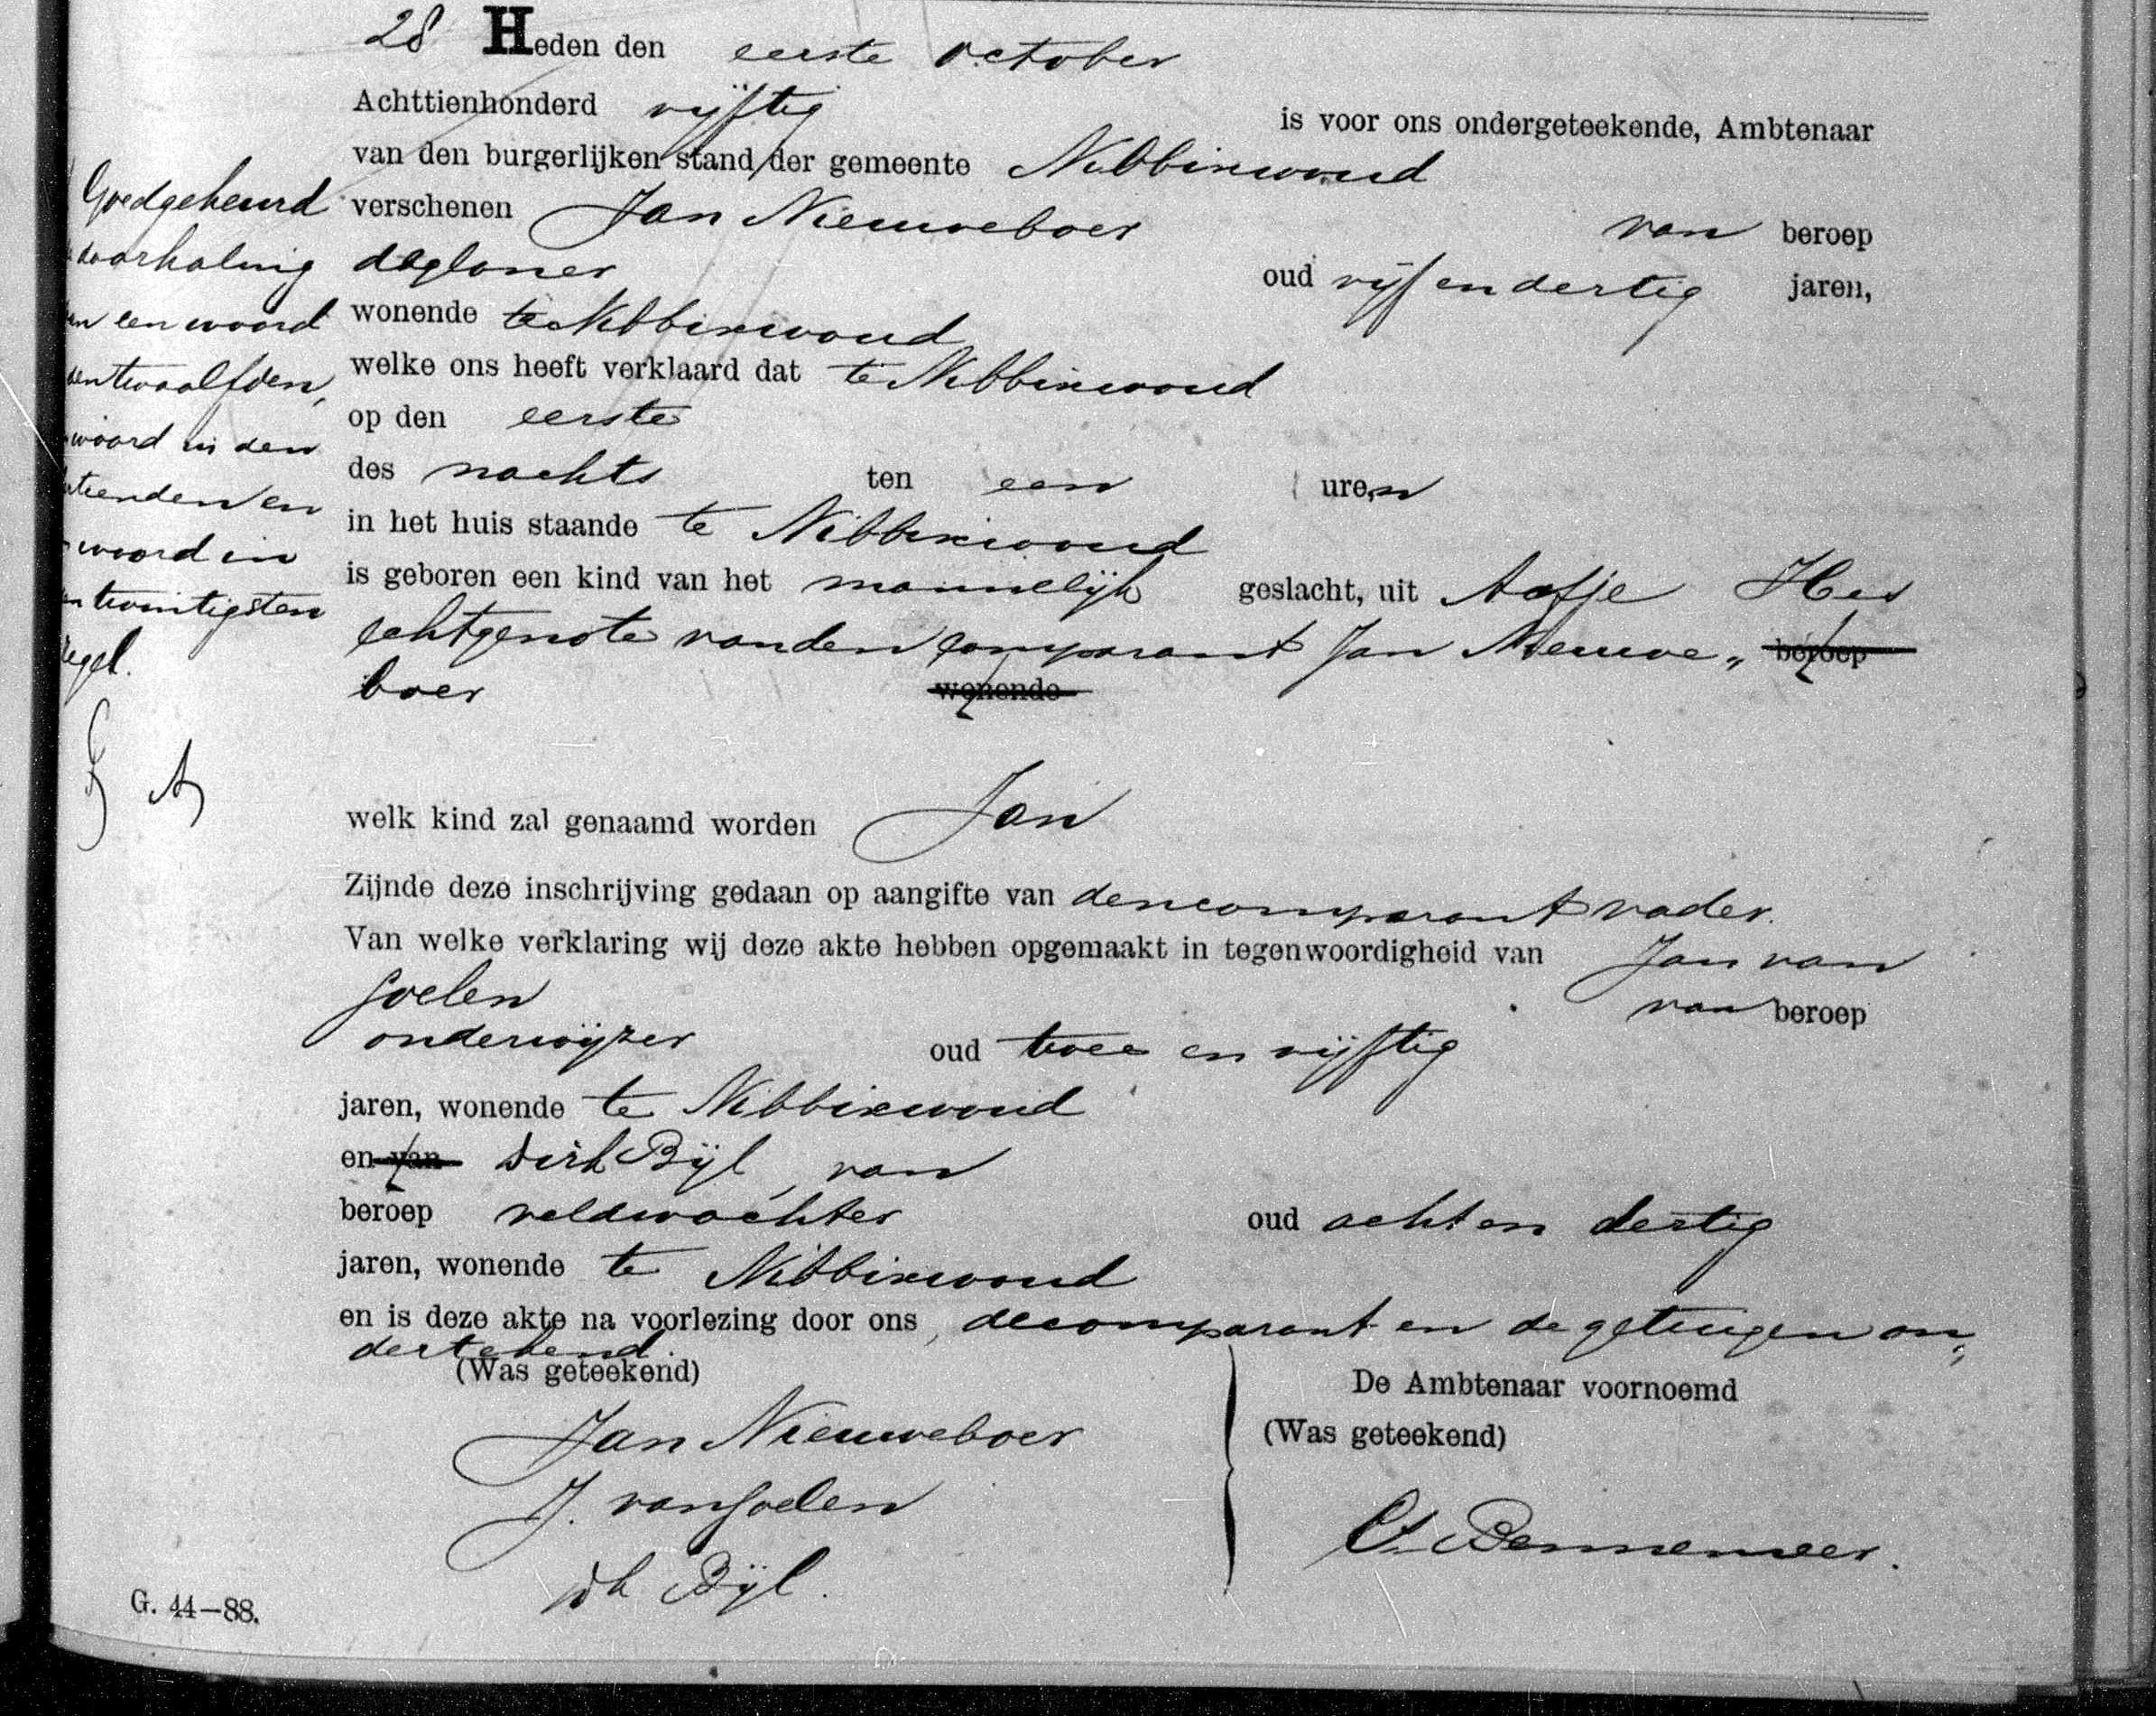 28 Heden den eerste October
Achttienhonderd vijftig is voor ons ondergeteekende, Ambtenaar
van den burgerlijken stand der gemeente Nibbixwoud
verschenen Jan Nieuweboer van beroep
dagloner oud vijf en dertig jaren,
wonende te Nibbixwoud
welke ons heeft verklaard dat te Nibbixwoud
op den eerste
des nachts ten een uren
in het huis staande te Nibbixwoud
is geboren een kind van het mannelijk geslacht, uit Aafje Hes
echtgenote van den comparant Jan Nieuwe„ beroep
boer wonende
welk kind zal genaamd worden Jan
Zijnde deze inschrijving gedaan op aangifte van den comparant vader.
Van welke verklaring wij deze akte hebben opgemaakt in tegenwoordigheid van Jan van
Goelen van beroep
onderwijzer oud twee en vijftig
jaren, wonende te Nibbixwoud
en van Dirk Bijl, van
beroep veldwachter oud acht en dertig
jaren, wonende te Nibbixwoud
en is deze akte na voorlezing door ons, de comparant en de getuigen on„
dertekend.
(Was geteekend)
Jan Nieuweboer
J. van Goelen
Dk Bijl.
De Ambtenaar voornoemd
(Was geteekend)
Bennemeer.
Goedgekeurd
doorhaling
een woord
twaalfden,
woord in den
en
woord in
twintigsten
regel.
G. 44–88.